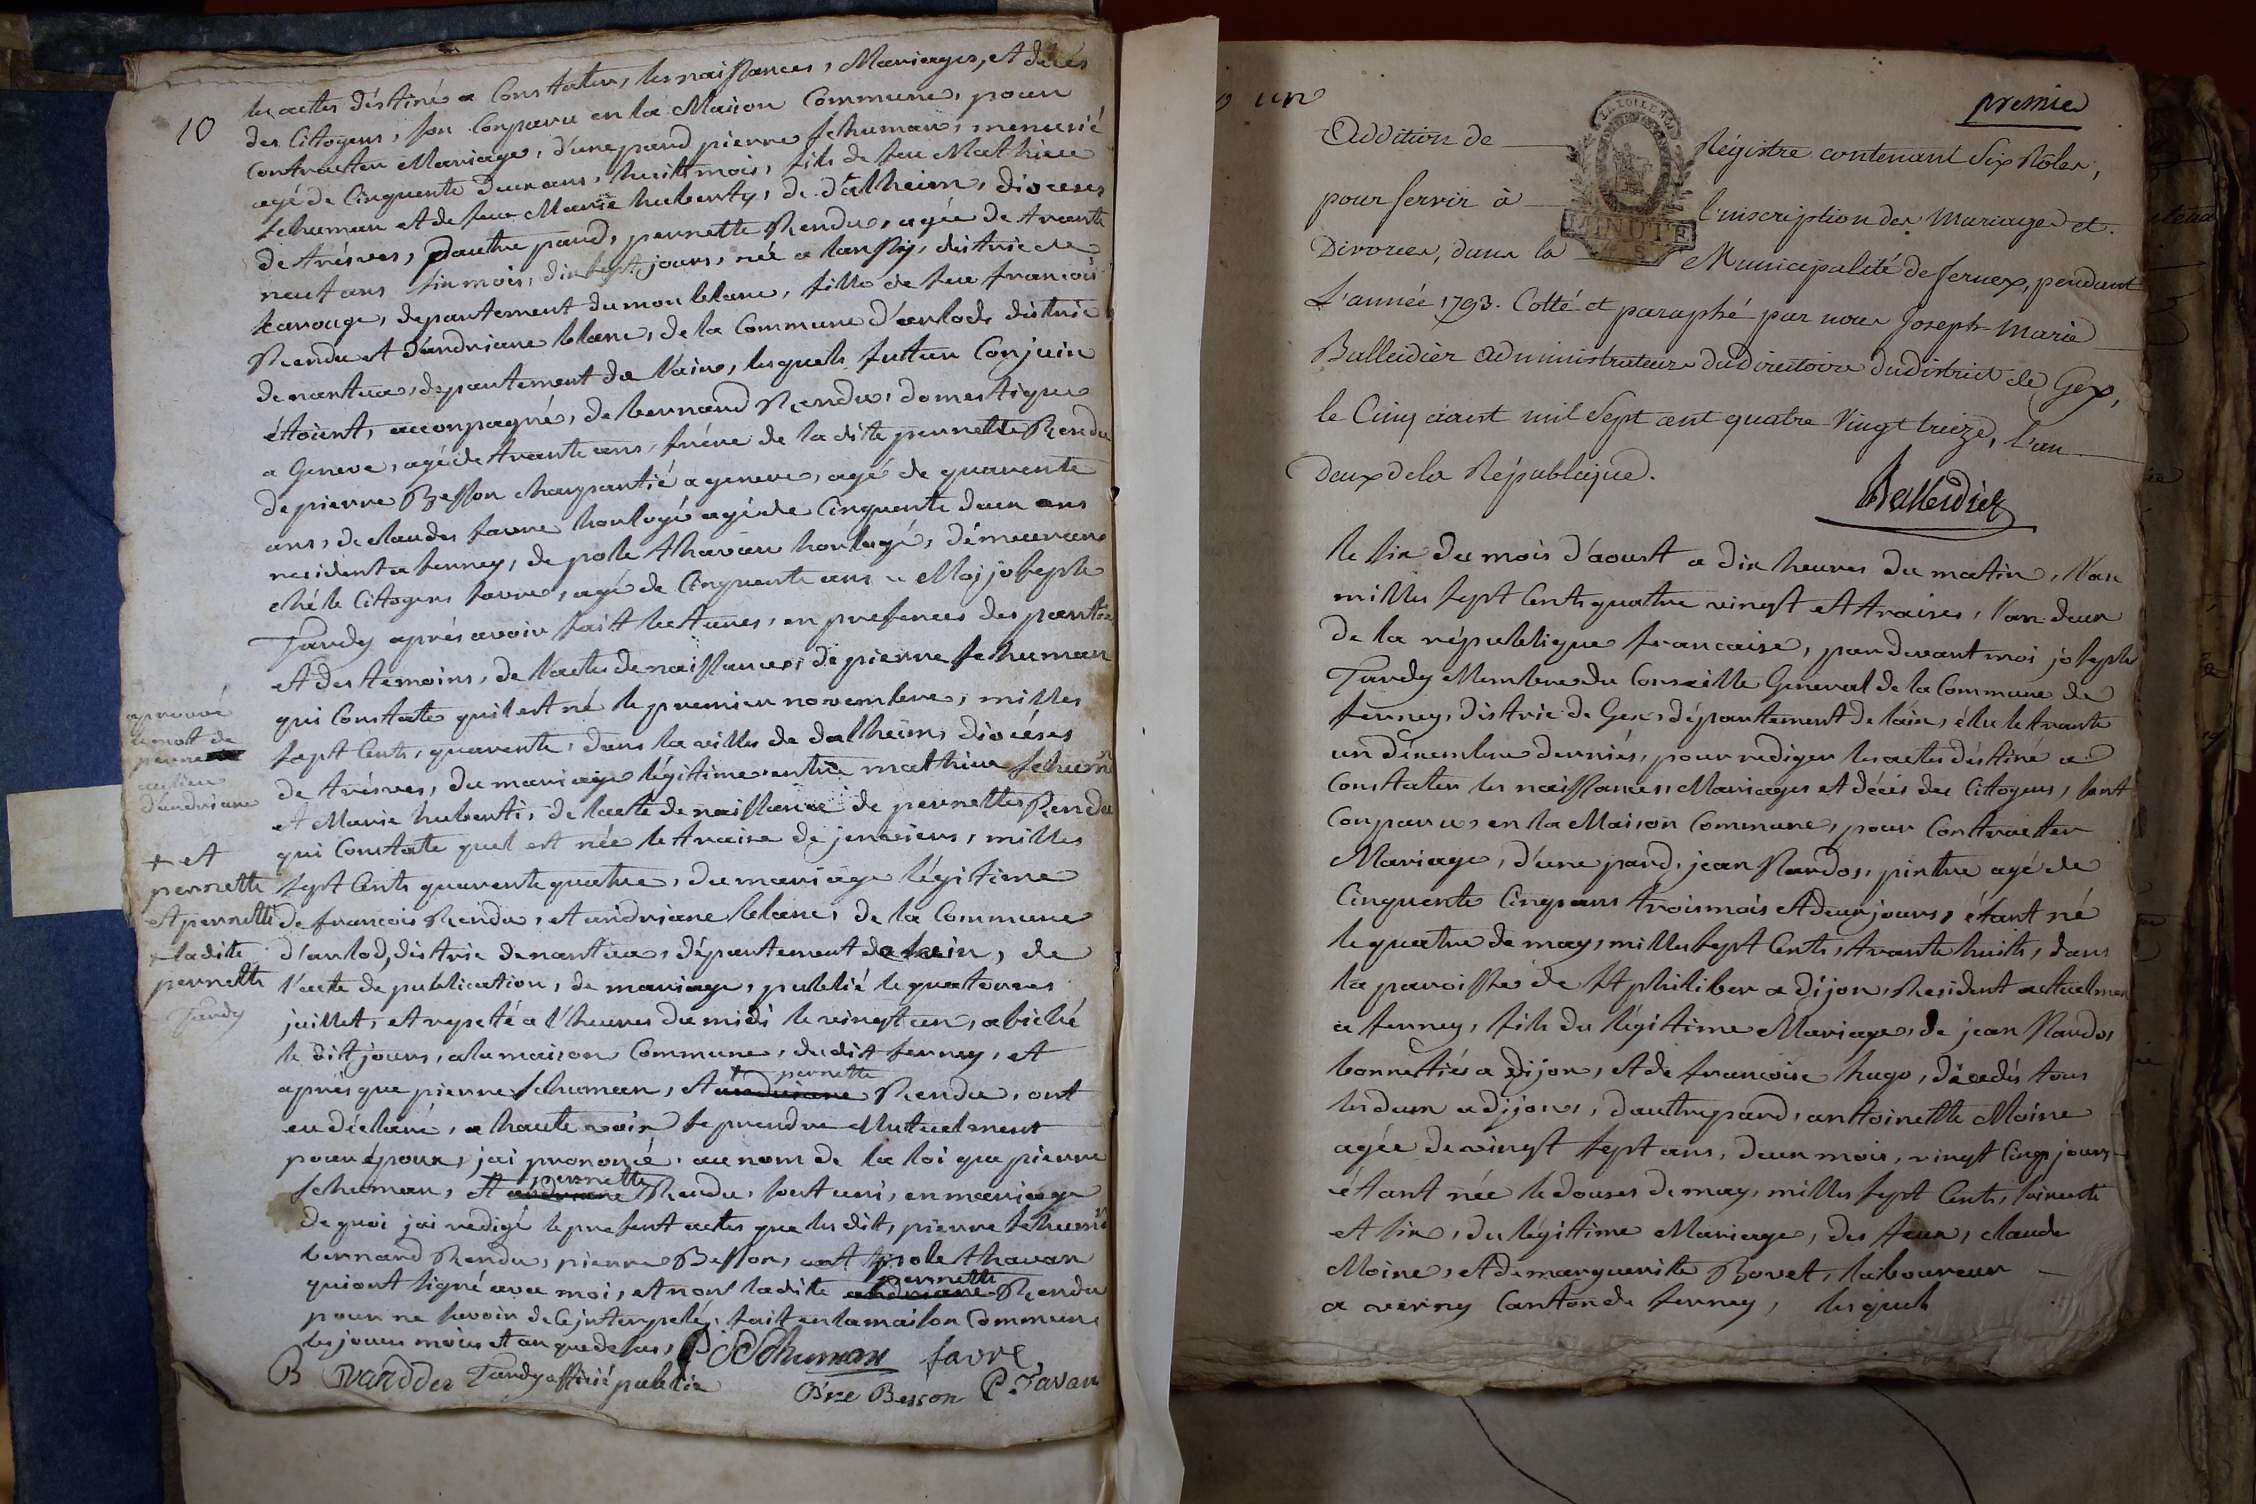 10
les actes déstiné a Constater, les naissances, Mariages, et décés
des Cittogens, son Conparu en la Maison Commune, pour
Contracter Mariage, d'une pard pierre schuman, menusié
agé de Cinquente deux ans, huilt mois, fils de feu Mathieu
schuman et de feue Marie huberty, de dalheim, dioceses
de tréves, dautre pard, pernette Rendu, agée de trante
neuf ans six mois, dix sept jours, née a lansÿ, distric de
carouge, departement du mon blanc, fille de feu francois
Rendu et d'andriane blanc, de la Commune d'arlods distric
de nantua, departement de l'ain, lesquels futur Conjoin
étoient, acconpagné, de bernard Rendu, domestique
a Geneve, agé de trante ans, frére de la dite pernette Rendu
de pierre Besson charpantié a geneve, agé de quarente
ans, de claudes favre horlogé agé de Cinquente deux ans
resident a ferney, de pole thavan horlogé, démeurant
ché le Cittogens favre, agé de Cinquente ans Moi joseph
Tardy aprés avoir fait lectures, en presences des parties
et des temoins, de l'actes de naissances, de pierre schuman
qui Constate quil est né le premier novembre, milles
sept Cents, quarente, dans la villes de dalheim, dioceses
de tréves, du mariage légitime entre mathieu schumn
et Marie huberti, de l'acte de naissance de pernettes Rendu
qui Constate quel est née le traise de jenviers, milles
sept Cents quarente quatre, du mariage légitime
de francois Rendu, et andriane blanc, de la Commune
d'arlod, distric de nantua, département de lain, de
l'acte de publication, de mariage, publié le quatorses
juillet, et repeté a l'heures du midi le vingt un, afiché
le dit jours, a la maison Commune, du dit ferney, et
aprés que pierre schuman, et andriane pernette Rendu, ont
eu déclaré, a haute voix se prendre Mutuelment
pour époux, jai prononcé, au nom de la loi que pierre
schuman, et andriane pernette Rendu, sont uni, en mariage
de quoi jai redigé le present actes que les dit, pierre schumn
bernard Rendu, pierre Besson, et pole thavan
qui ont signé avec moi, et non ladite andriane pernette Rendu
pour ne savoir de ce interpelé, fait en la maison Commune
les jours mois et an que desus,
P Schuman favre
B Tardy officié public
Pre Besson P. Tavan
aprouvé
le mot de
pernette
au lieu
d'andriane
+ et
pernette
et pernette
+ ladite
pernette
Tardy
un
premier
Addition de Régistre contenant Six Rôles,
pour servir à l'inscription des Mariages et
MINUTE
Divorces, dans la Municipalité de fernex, pendant
L'année 1793. Cotté et paraphé par nous Joseph-Marie
Balleidier administrateur du directoire du District de Gex,
le Cinq aoust mil Sept cent quatre Vingt treize, l'an
deux de la République.
Balleidier
le six du mois d'aoust a dix heures du matin, l'an
milles sept Cents quattre vingt et traises, l'an deux
de la république francaise, par devant moi joseph
Tardy Membre du Conseille General de la Commune de
ferney, distric de Gex, département de lain, élu le trante
un décembre derniés, pour rediger les actes déstiné a
Constater les naissances, Mariages et décés des Cittogens, sont
Conparus en la Maison Commune, pour Contracter
Mariage, d'une pard, jean Nardos, pintre agé de
Cinquente Cinq ans trois mois et deux jours, étant né
le quatre de may, milles sept Cents, trante huits, dans
la paroisse de st philiber a dijon, Resident actuelmen
a ferney, fils du légitime Mariage, de jean Nardos
bonnetiés a dijon, et de francoise hugo, décédés tous
les deux a dijons, dautre pard, antoinette Moine
agée de vingt sept ans, deux mois, vingt Cinq jours
étant née le douses de may, milles sept Cents, soixente
et six, du légitime Mariage, des feux, claude
Moine, et de marguerite Bovet, laboureur
a verny Canton de ferney, lesquels